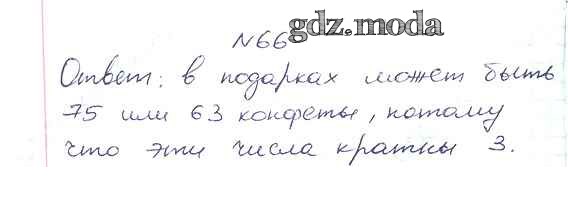 №66
gdz.moda
Ответ: в подарках может быть
75 или 63 конфеты, потому
что эти числа кратны 3.